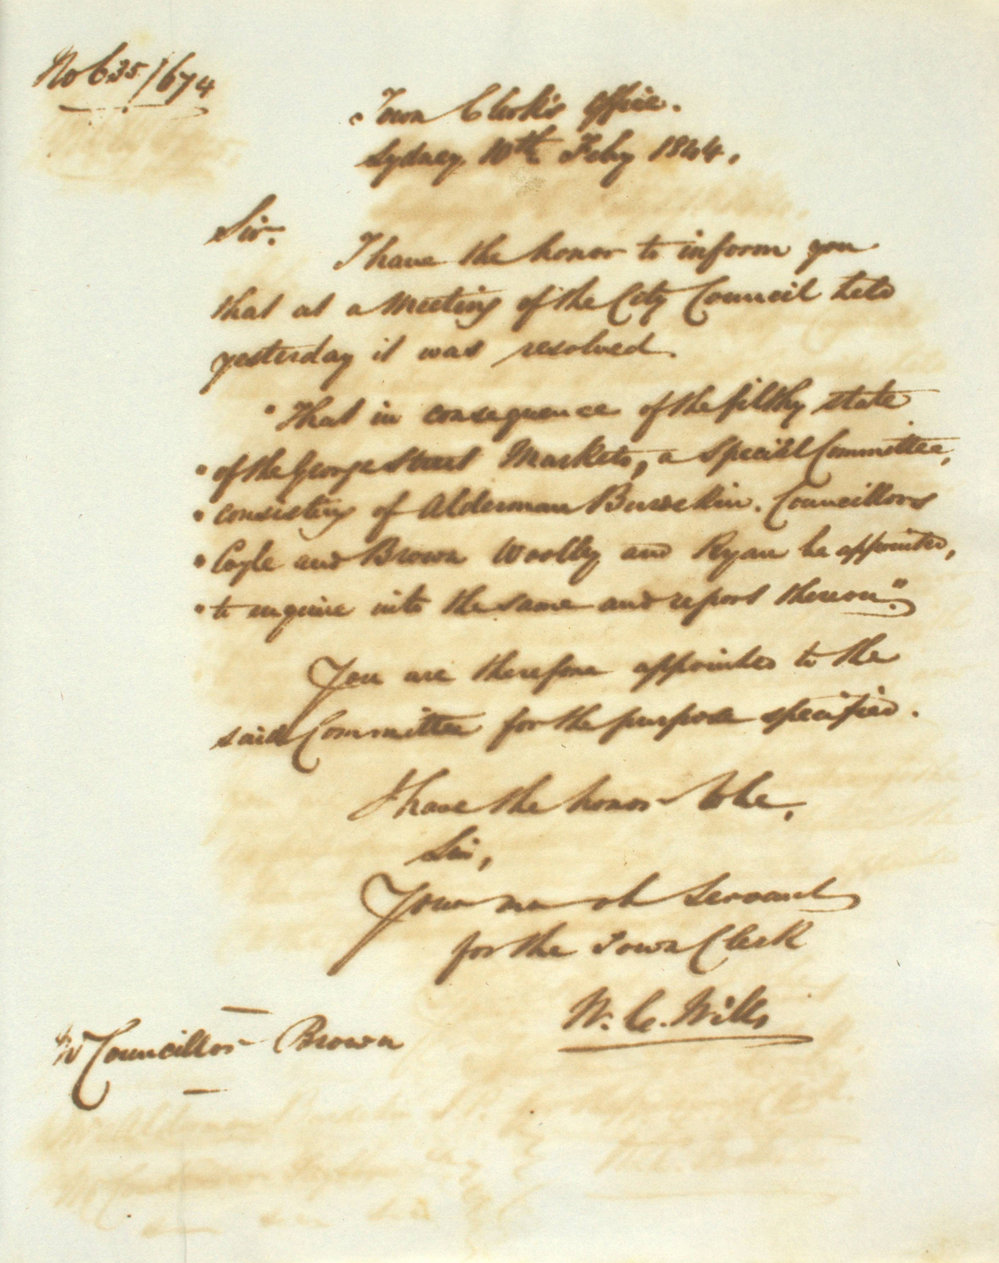 No 635/674
Town Clerk's Office.
Sydney 10th Feby 1844.
Sir.
I have the honor to inform you
that at a Meeting of the City Council held
yesterday it was resolved.
"That in consequence of the filthy state
"of the George Street Markets, a Special Committee,
"consisting of Alderman Burdekin. Councillors
"Coyle and Brown Woolley and Ryan be appointed,
"to enquire into the same and report thereon."
You are therefore appointed to the
said Committee for the purpose specified.
I have the honor to be,
Sir,
Your ob Servant
for the Town Clerk
W. C. Wills
Mr Councillor Brown